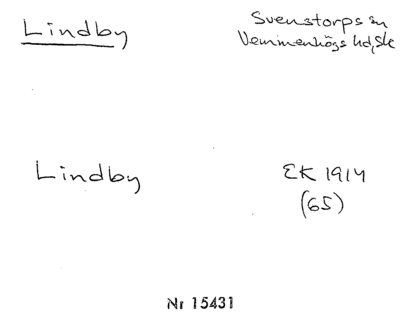 Lindby
Svenstorps sn
Vemmenhögs hd, Sk
Lindby
EK 1914
(65)
Nr 15431